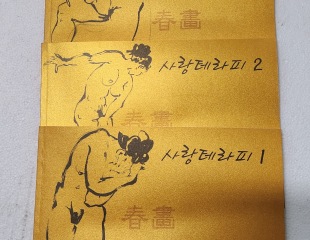 春畫
사랑테라피 2
春畫
사랑테라피 1
春畫